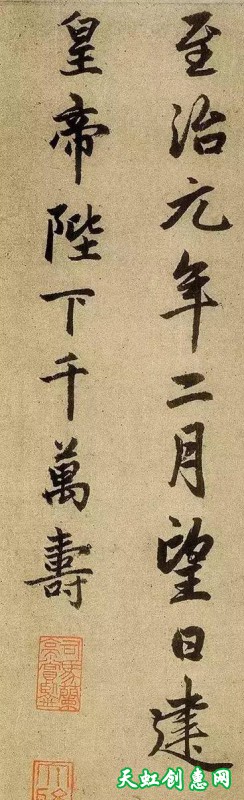 至治元年二月望日建
皇帝陛下千萬壽
天虹创惠网